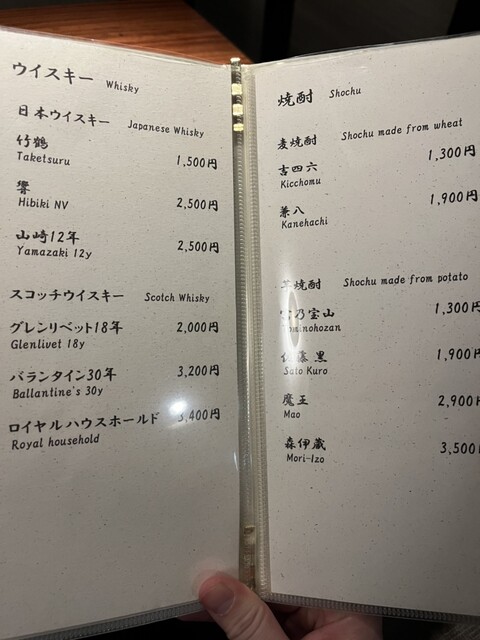 ウイスキー Whisky
日本ウイスキー Japanese Whisky
竹鶴
Taketsuru 1,500円
響
Hibiki NV 2,500円
山崎12年 2,500円
Yamazaki 12y
スコッチウイスキー Scotch Whisky
グレンリベット18年 2,000円
Glenlivet 18y
バランタイン30年 3,200円
Ballantine's 30y
ロイヤルハウスホールド 3,400円
Royal household
焼酎 Shochu
麦焼酎 Shochu made from wheat
吉四六 1,300円
Kicchomu
兼八 1,900円
Kanehachi
焼酎 Shochu made from potato
乃宝山 1,300円
佐藤 黒 1,900円
Sato Kuro
魔王 2,900円
Mao
森伊蔵 3,500円
Mori-Izo